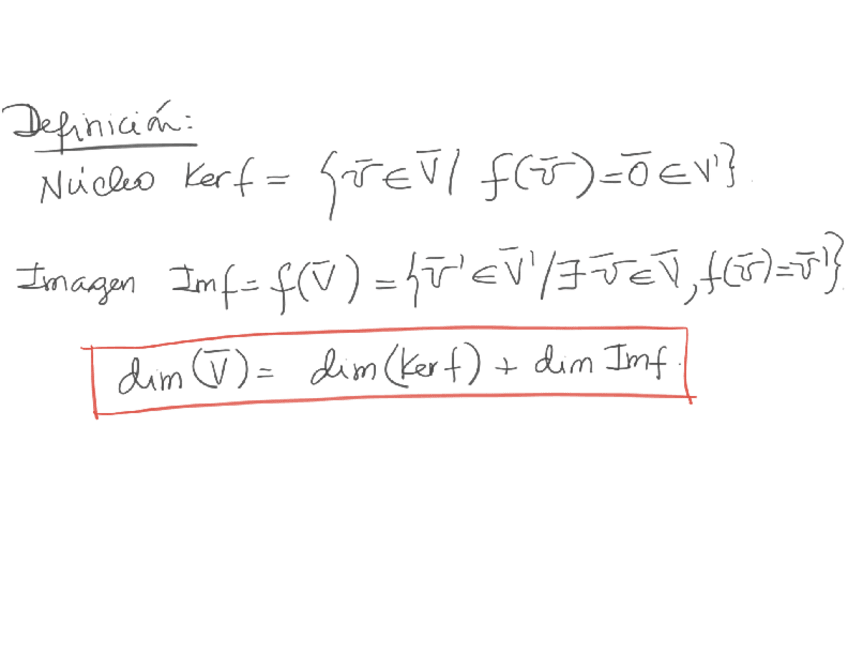 Definición:
Núcleo Kerf = {v̄ ∈ V̄ / f(v̄) = 0̄ ∈ V'}
Imagen Imf = f(V̄) = {v̄' ∈ V̄' / ∃ v̄ ∈ V̄, f(v̄) = v̄'}
dim(V̄) = dim(Kerf) + dim Imf.